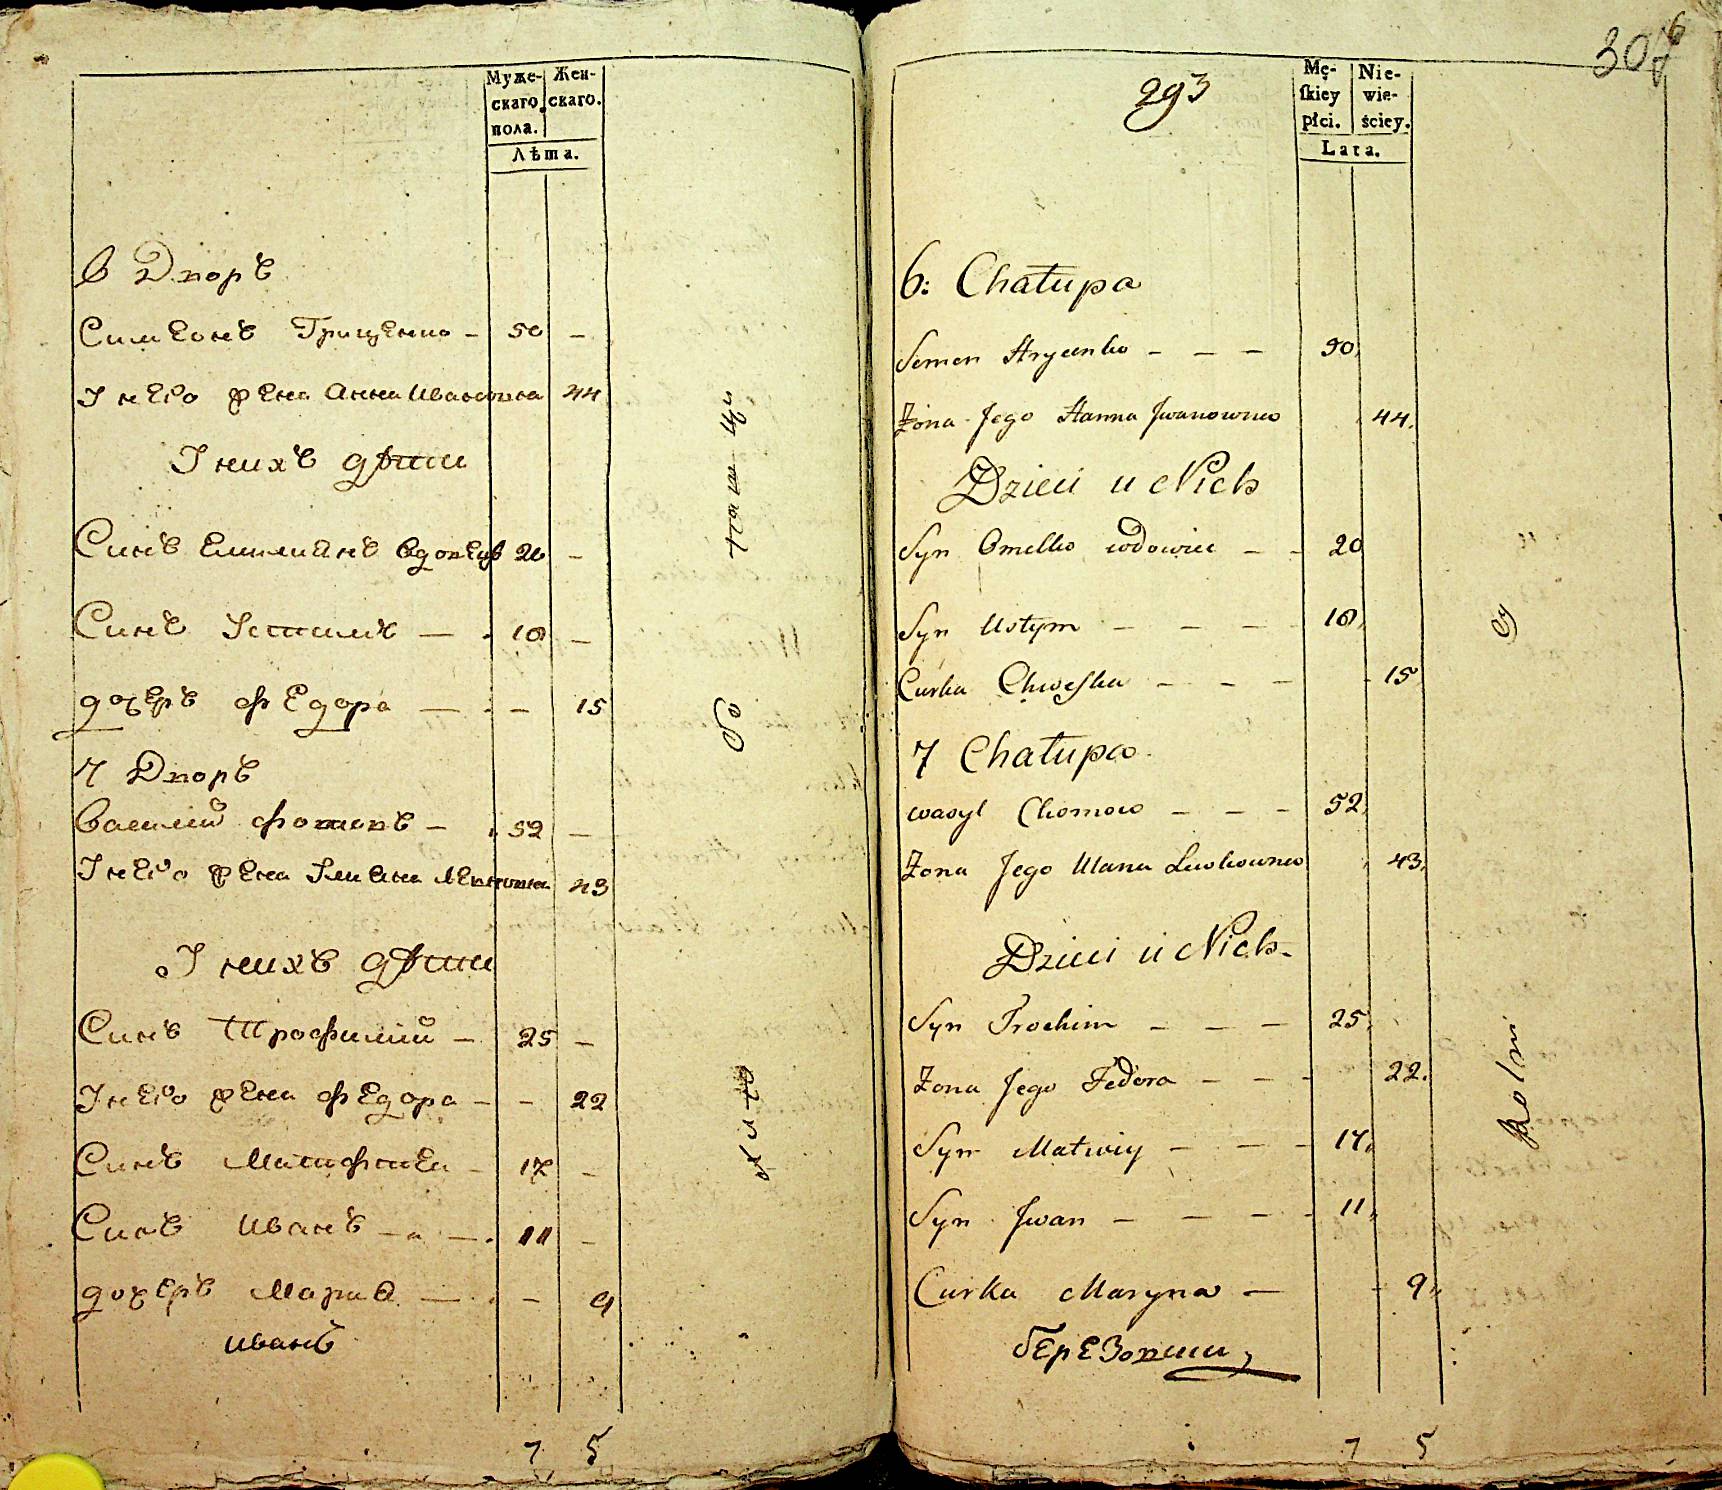 Муже-
скаго
пола.
Жен-
скаго.
Лѣта.
6 Дворъ
Симеонъ Грищенко - 50 -
У него жена Анна Ивановна 44
У нихъ дѣти
Синъ Емилианъ вдовецъ 20 -
Синъ Устимъ — 18 -
дочеръ Федора — - 15
7 Дворъ
Василий Фотовъ - 52 -
У него жена Улиана 43
У нихъ дѣти
Синъ Трофимий - 25 -
У него жена Федора - - 22
Синъ Матфѣй - 17 -
Синъ Иванъ - - 11 -
дочеръ Мариа — - 9
Иванъ
7 5
307
6
293
Mę-
ſkiey
płci.
Nie-
wie-
ściey.
Lata.
6: Chałupa
Semen Hrycenko - - - 50
Żona Jego Hanna Jwanowna 44.
Dzieci u Nich
Syn Omelko wdowiec - - 20
Syn Ustym - - - - 18
Curka Chweſka - - - 15
7 Chałupa
wasyl Chomow - - - 52
Żona Jego Ulana Lewkowna 43
Dzieci u Nich -
Syn Trochim - - - 25
Żona Jego Fedora - - - 22.
Syn Matwiy - - - 17
Syn Jwan - - - - 11
Curka Maryna - - 9
Rolni
Березовши
7 5